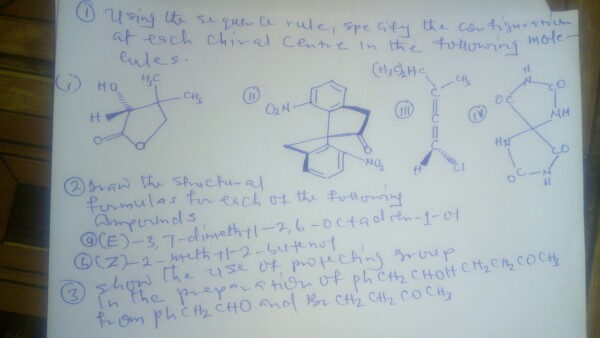 ① Using the sequence rule, specify the configuration
at each chiral centre in the following mole-
cules.
(i) HO H₃C CH₃ H O O
(ii) O₂N O NO₂
(iii) (H₃C)₂HC CH₃ C C H Cl
(iv) H N O OC NH HN CO O C N H
② Draw the structural
formulas for each of the following
compounds
ⓐ (E)-3,7-dimethyl-2,6-octadien-1-ol
ⓑ (Z)-2-methyl-2-butenol
③ Show the use of protecting group
in the preparation of phCH₂CHOHCH₂CH₂COCH₃
from phCH₂CHO and BrCH₂CH₂COCH₃